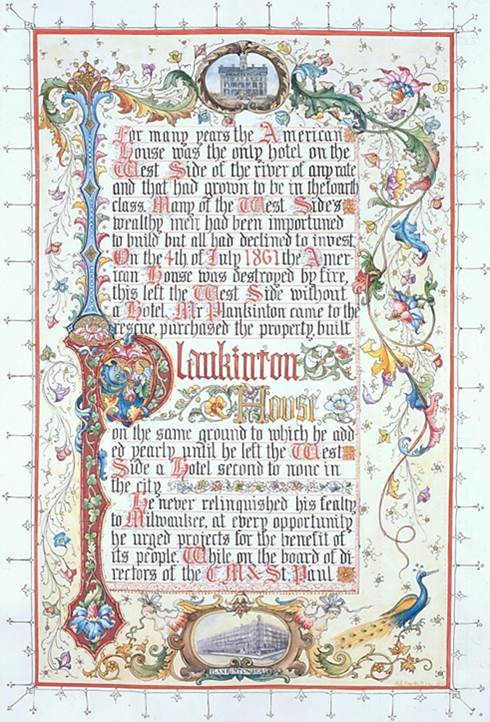 For many years the American
House was the only hotel on the
West Side of the river of any rate
and that had grown to be in the fourth
class. Many of the West Side's
wealthy men had been importuned
to build but all had declined to invest.
On the 4th of July 1861 the Amer-
ican House was destroyed by fire,
this left the West Side without
a Hotel. Mr Plankinton came to the
rescue, purchased the property, built
Plankinton
House
on the same ground to which he add
ed yearly until he left the West
Side a Hotel second to none in
the city
He never relinquished his fealty
to Milwaukee, at every opportunity
he urged projects for the benefit of
its people. While on the board of di
rectors of the C.M.& St. Paul
PLANKINTON HOUSE